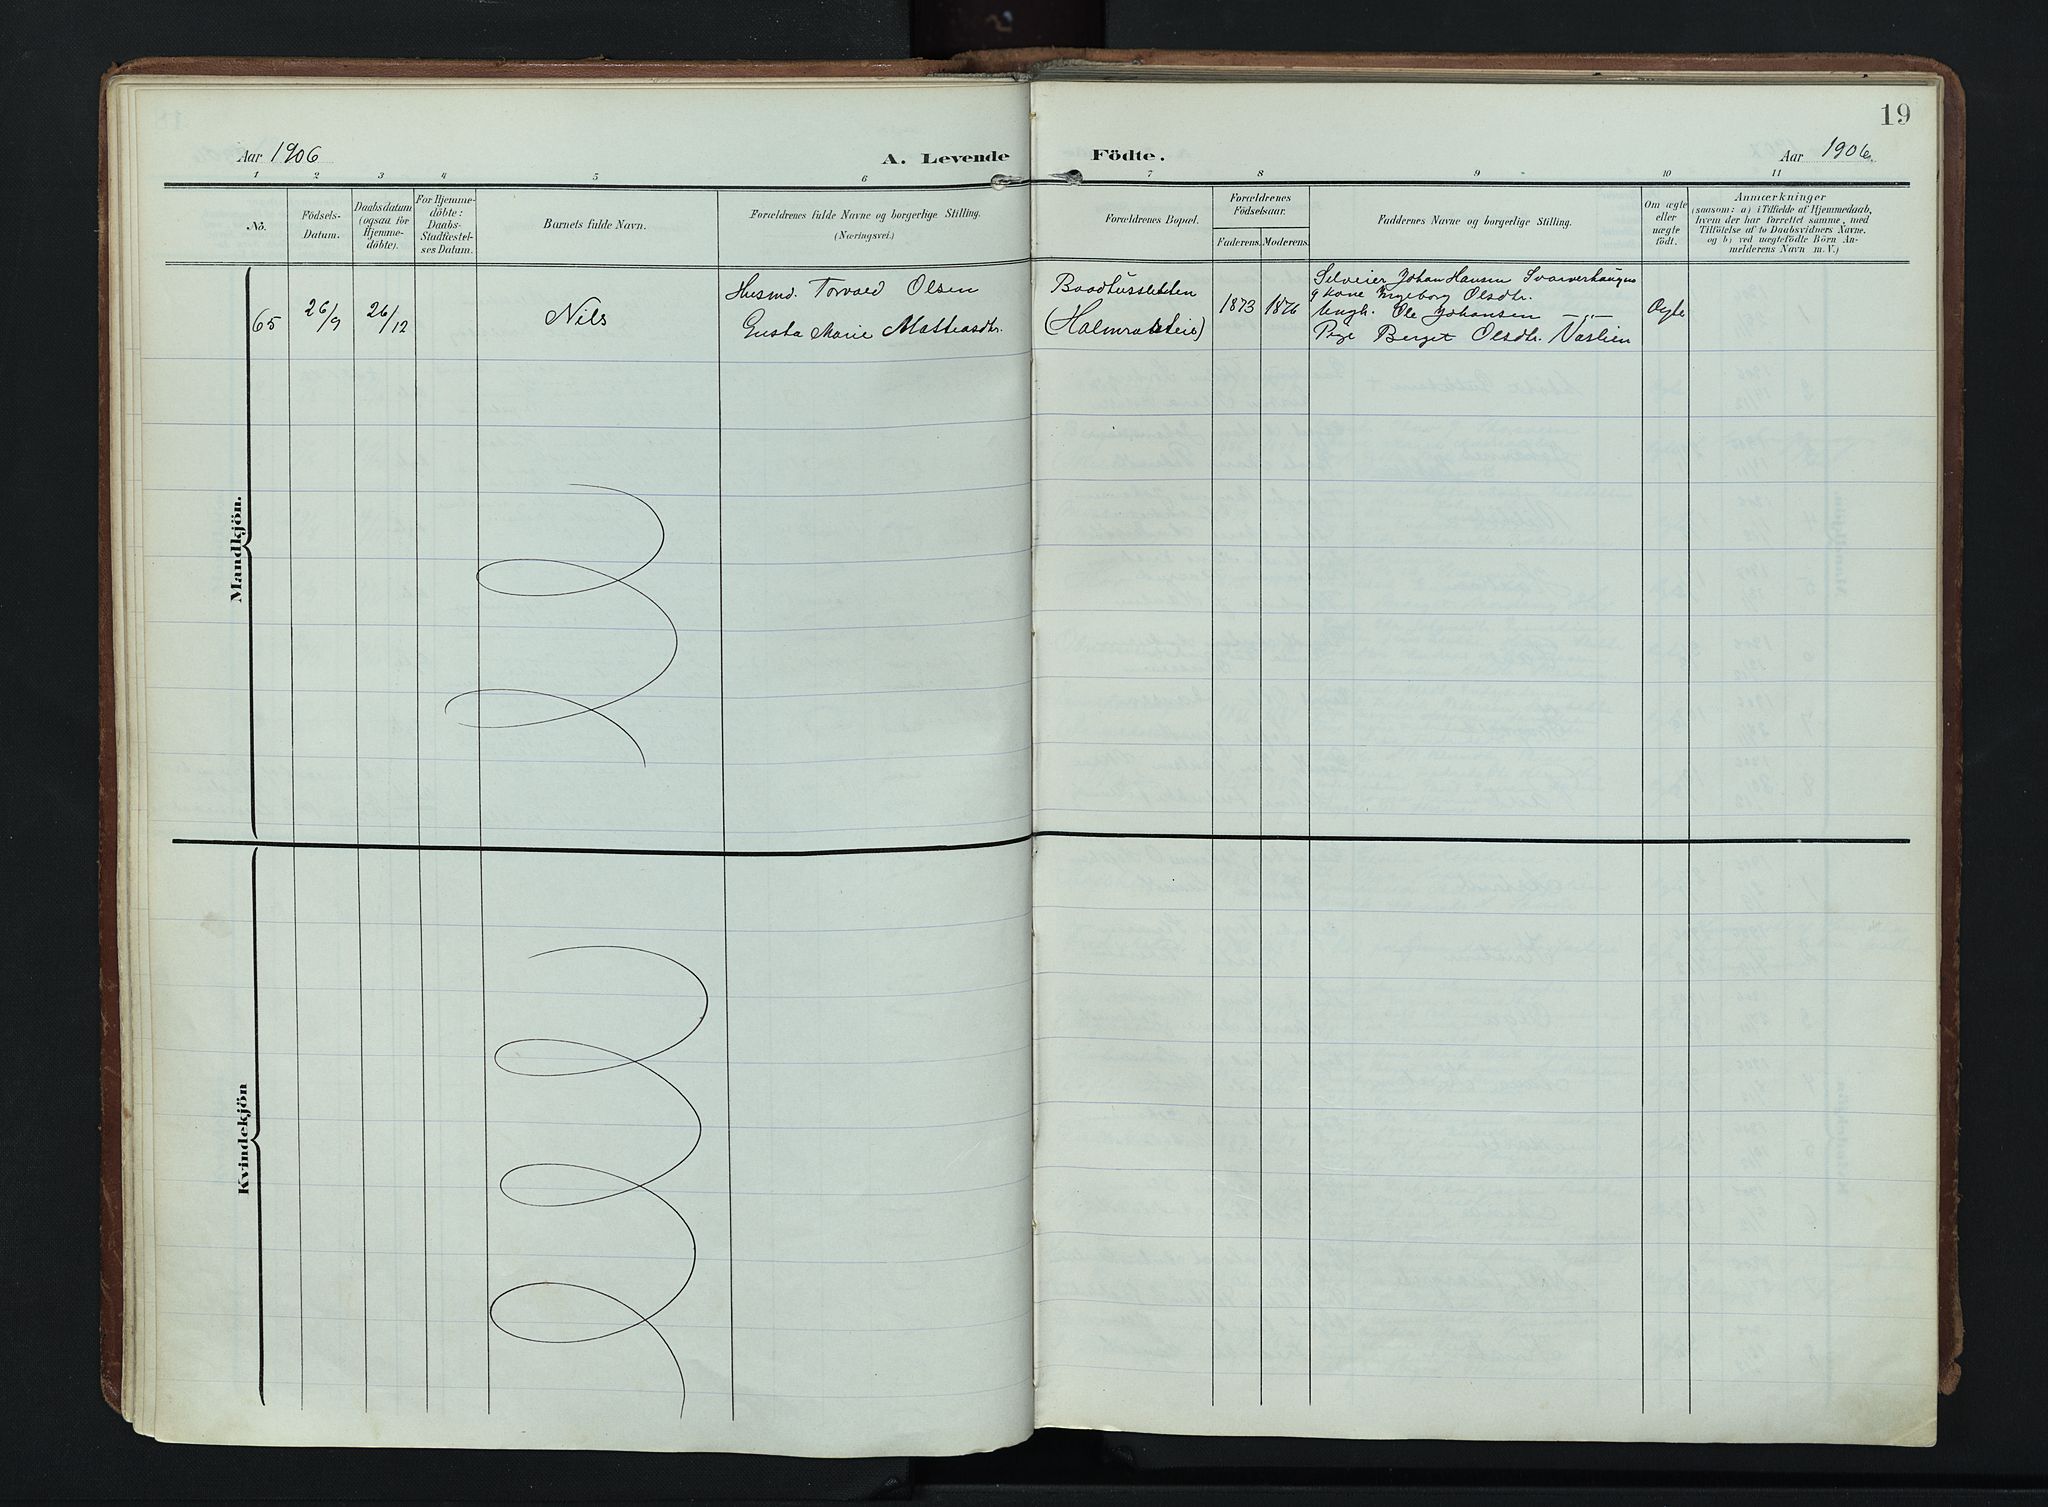 19
Aar 1906
A. Levende Födte.
Aar 1906
1 2 3 4 5 6 7 8 9 10 11
No.
Födsels-
Datum.
Daabsdatum
(ogsaa for
Hjemme-
döbte).
For Hjemme-
döbte:
Daabs-
Stadfæstel-
ses Datum.
Barnets fulde Navn.
Forældrenes fulde Navne og borgerlige Stilling.
(Næringsvei.)
Forældrenes Bopæl.
Forældrenes
Födselsaar.
Faderens. Moderens.
Faddernes Navne og borgerlige Stilling.
Om ægte
eller
uægte
födt.
Anmærkninger
(saasom: a) i Tilfælde af Hjemmedaab,
hvem der har forrettet samme, med
Tilföielse af to Daabsvidners Navne.
og b) ved uægtefödte Börn An-
melderens Navn m. V.)
Mandkjön.
65
26/9
26/12
Nils
Husmd. Torvald Olsen
Gusta Marie Mathiasdtr.
(Halmrasteie)
1873
1876
Selveier Johan Hansen
g kone Ingeborg Olsdtr.
Ungk. Ole Johansen —"—
Pige Berget Olsdtr. Vaslien
Ægte
Kvindekjön